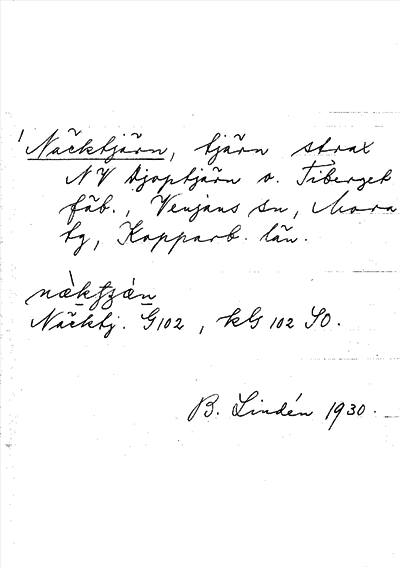 Näcktjärn, tjärn strax
NV Djuptjärn o. Tiberget
fäb., Venjans sn, Mora
tg, Kopparb. län.
nækt̯jæ̀n
Näcktj. G102, kG 102 SO.
B. Lindén 1930.